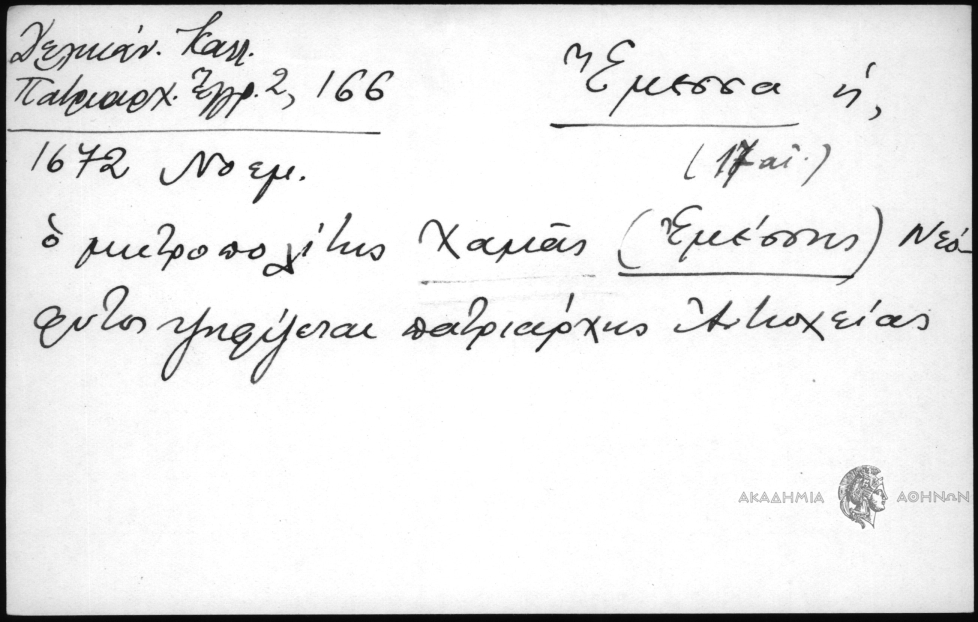 Δελικάν. Καλλ.
Πατριαρχ. Ἔγγρ. 2, 166
Ἔμεσσα ἡ,
(17 αἰ.)
1672 Νοεμ.
ὁ μητροπολίτης Χαμᾶς (Ἐμέσσης) Νεό-
φυτος ψηφίζεται πατριάρχης Ἀντιοχείας
ΑΚΑΔΗΜΙΑ ΑΘΗΝΩΝ